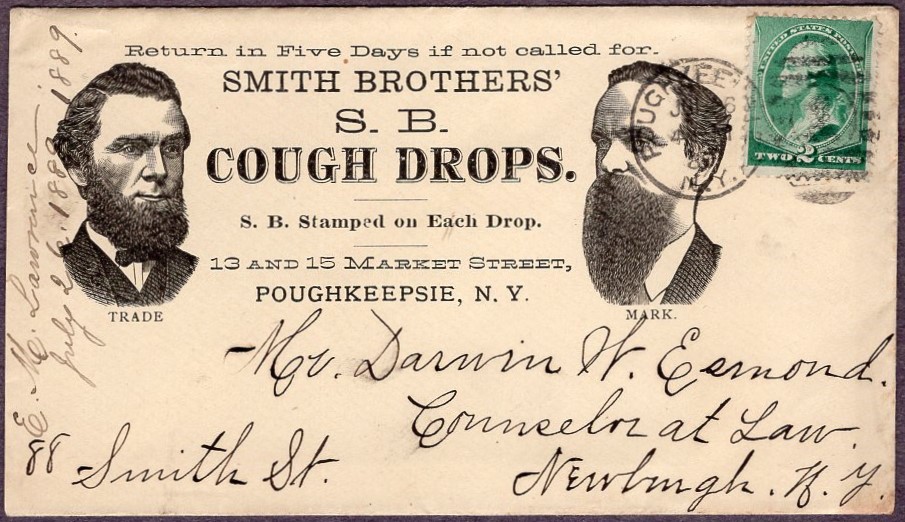 Return in Five Days if not called for.
SMITH BROTHERS'
S. B.
COUGH DROPS.
S. B. Stamped on Each Drop.
13 AND 15 MARKET STREET,
POUGHKEEPSIE, N. Y.
TRADE
MARK.
UNITED STATES POSTAGE
TWO 2 CENTS
POUGHKEEPSIE
N.Y.
Mr. Darwin W. Esmond.
Counselor at Law.
Newburgh. N. Y.
88 Smith St.
E. M. Lawrence
July 26. 1889. 1889.